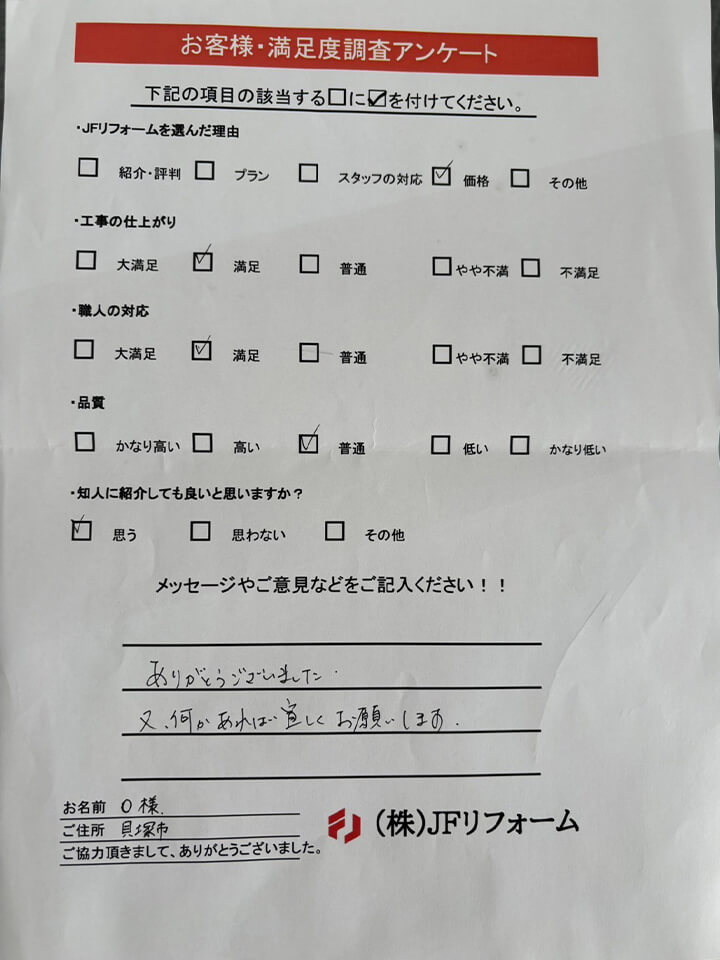 お客様・満足度調査アンケート
下記の項目の該当する□に☑を付けてください。
・JFリフォームを選んだ理由
□ 紹介・評判 □ プラン □ スタッフの対応 ☑ 価格 □ その他
・工事の仕上がり
□ 大満足 ☑ 満足 □ 普通 □ やや不満 □ 不満足
・職人の対応
□ 大満足 ☑ 満足 □ 普通 □ やや不満 □ 不満足
・品質
□ かなり高い □ 高い ☑ 普通 □ 低い □ かなり低い
・知人に紹介しても良いと思いますか？
☑ 思う □ 思わない □ その他
メッセージやご意見などをご記入ください！！
ありがとうございました.
又、何かあれば宜しくお願いします.
お名前 O様.
ご住所 貝塚市
ご協力頂きまして、ありがとうございました。
(株)JFリフォーム